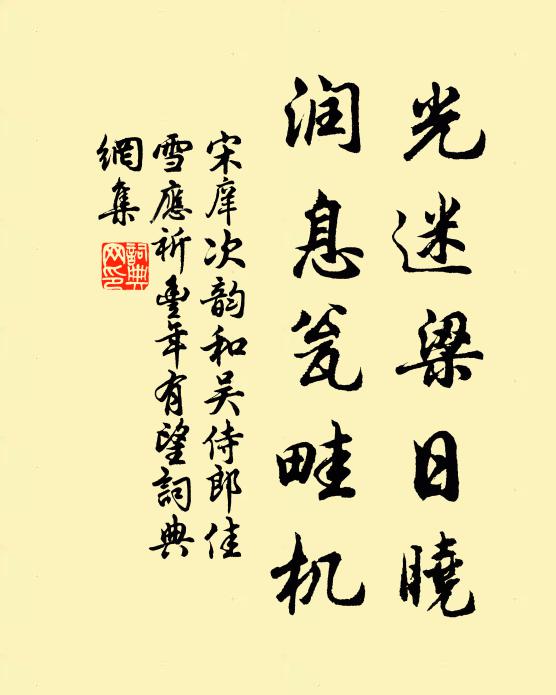 光迷梁日曉
润息瓮畦机
宋庠次韵和吴侍郎佳
雪應祈豐年有望詞典
網集
詞典
网印